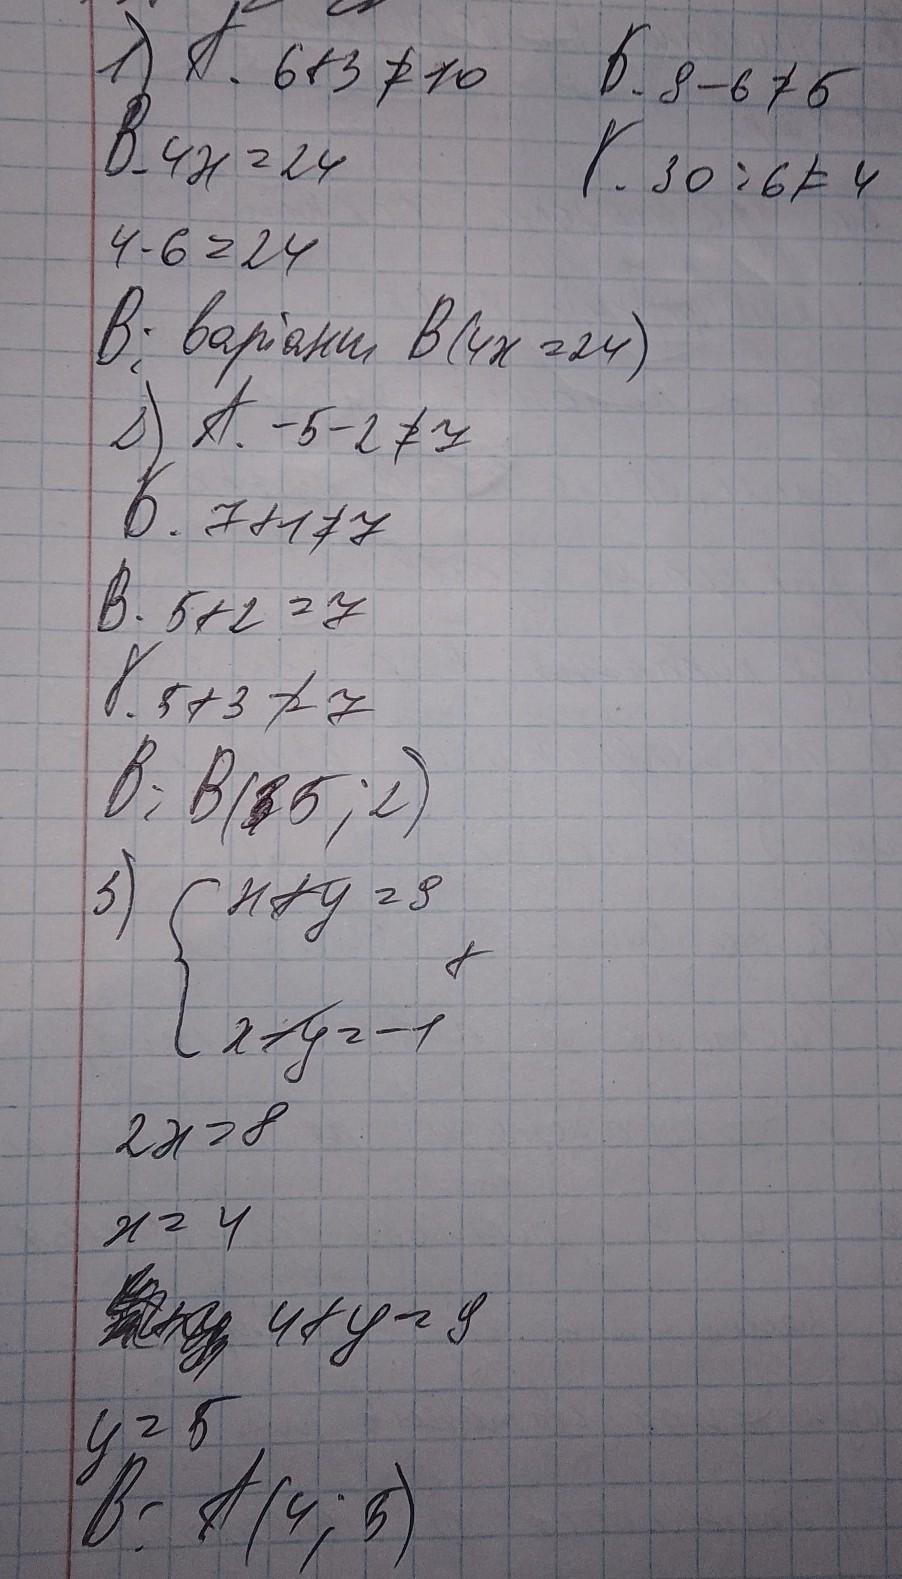 1) А. 6+3≠10 Б. 9-6≠5
В. 4x=24 Г. 30:6≠4
4·6=24
В: варіант В(4x=24)
2) А. -5-2≠7
Б. 7+1≠7
В. 5+2=7
Г. 5+3≠7
В: В(5;2)
3) { x+y=9
+
x-y=-1
2x=8
x=4
4+y=9
y=5
В: А(4;5)